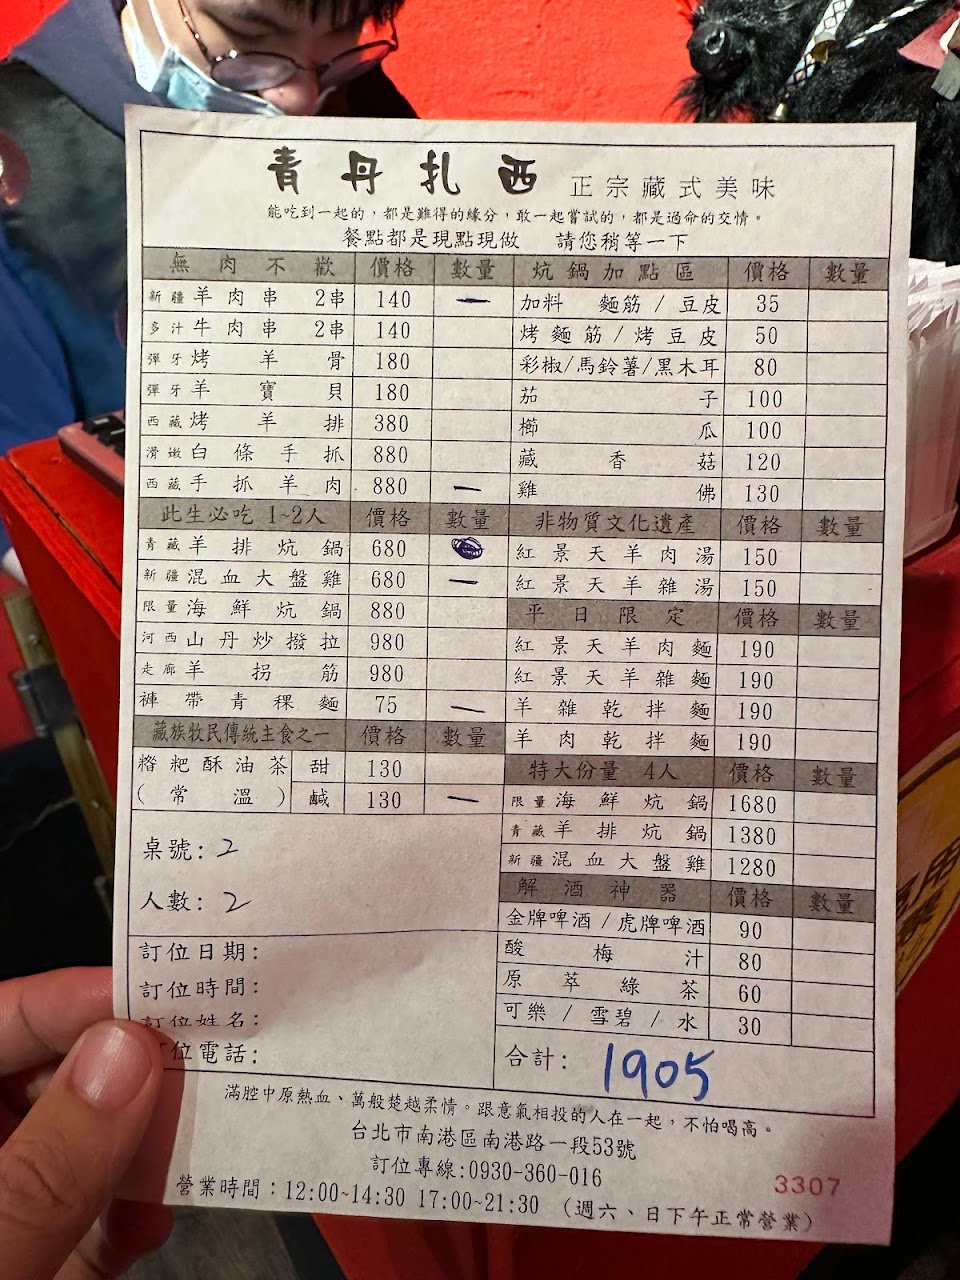 青丹扎西 正宗藏式美味
能吃到一起的，都是難得的緣分，敢一起嘗試的，都是過命的交情。
餐點都是現點現做 請您稍等一下
無肉不歡 價格 數量
新疆羊肉串 2串 140 一
多汁牛肉串 2串 140
彈牙烤羊骨 180
彈牙羊寶貝 180
西藏烤羊排 380
滑嫩白條手抓 880
西藏手抓羊肉 880 一
此生必吃 1~2人 價格 數量
青藏羊排炕鍋 680
新疆混血大盤雞 680 一
限量海鮮炕鍋 880
河西山丹炒撥拉 980
走廊羊拐筋 980
褲帶青稞麵 75 一
藏族牧民傳統主食之一 價格 數量
糌粑酥油茶 甜 130
(常溫) 鹹 130 一
桌號: 2
人數: 2
訂位日期:
訂位時間:
訂位姓名:
訂位電話:
炕鍋加點區 價格 數量
加料 麵筋 / 豆皮 35
烤麵筋 / 烤豆皮 50
彩椒/馬鈴薯/黑木耳 80
茄子 100
櫛瓜 100
藏香菇 120
雞佛 130
非物質文化遺產 價格 數量
紅景天羊肉湯 150
紅景天羊雜湯 150
平日限定 價格 數量
紅景天羊肉麵 190
紅景天羊雜麵 190
羊雜乾拌麵 190
羊肉乾拌麵 190
特大份量 4人 價格 數量
限量海鮮炕鍋 1680
青藏羊排炕鍋 1380
新疆混血大盤雞 1280
解酒神器 價格 數量
金牌啤酒 / 虎牌啤酒 90
酸梅汁 80
原萃綠茶 60
可樂 / 雪碧 / 水 30
合計: 1905
滿腔中原熱血、萬般楚越柔情。跟意氣相投的人在一起，不怕喝高。
台北市南港區南港路一段53號
訂位專線:0930-360-016
營業時間：12:00~14:30 17:00~21:30 (週六、日下午正常營業)
3307